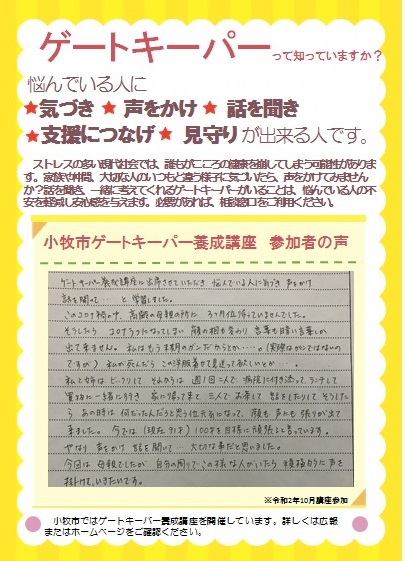 ゲートキーパーって知っていますか？
悩んでいる人に
★気づき★ 声をかけ★ 話を聞き
★支援につなげ★ 見守りが出来る人です。
ストレスの多い現代社会では、誰もがこころの健康を崩してしまう可能性がありま
す。家族や仲間、大切な人のいつもと違う様子に気づいたら、声をかけてみません
か？話を聞き、一緒に考えてくれるゲートキーパーがいることは、悩んでいる人の不
安を軽減し安心感を与えます。必要があれば、相談窓口をご利用ください。
小牧市ゲートキーパー養成講座 参加者の声
ゲートキーパー養成講座に出席させていただき 悩んでいる人に気づき 声をかけ
話を聞って… と学習しました。
このコロナ禍の中、高齢の母親の所に 3ヶ月位帰っていませんでした。
そうしたら コロナうつになってしまい 顔の相も変わり 言葉も暗い言葉しか
出て来ません。私はもう末期のガンだからとか…。(実際はガンではないの
ですが) 私が死んだら この洋服着せて見送って欲しいとか…。
私と姉は びっくりして それからは 週1回二人で 病院に付き添って、ランチして
買物に一緒に行き 家に帰って来て 三人で お茶して 話をしたりして そうした
ら あの時は 何だったんだろうと思う位元気になって、顔も 声にも 張りが出て
来ました。今では (現在91才) 100才を目標に頑張ると言っています。
やはり 声をかけ 話を聞いて… 大切な事だと思いました。
今回は 母親でしたが 自分の周りで この様な人がいたら 積極的に 声を
掛けて、いきたいです。
※令和2年10月講座参加
小牧市ではゲートキーパー養成講座を開催しています。詳しくは広報
またはホームページをご確認ください。